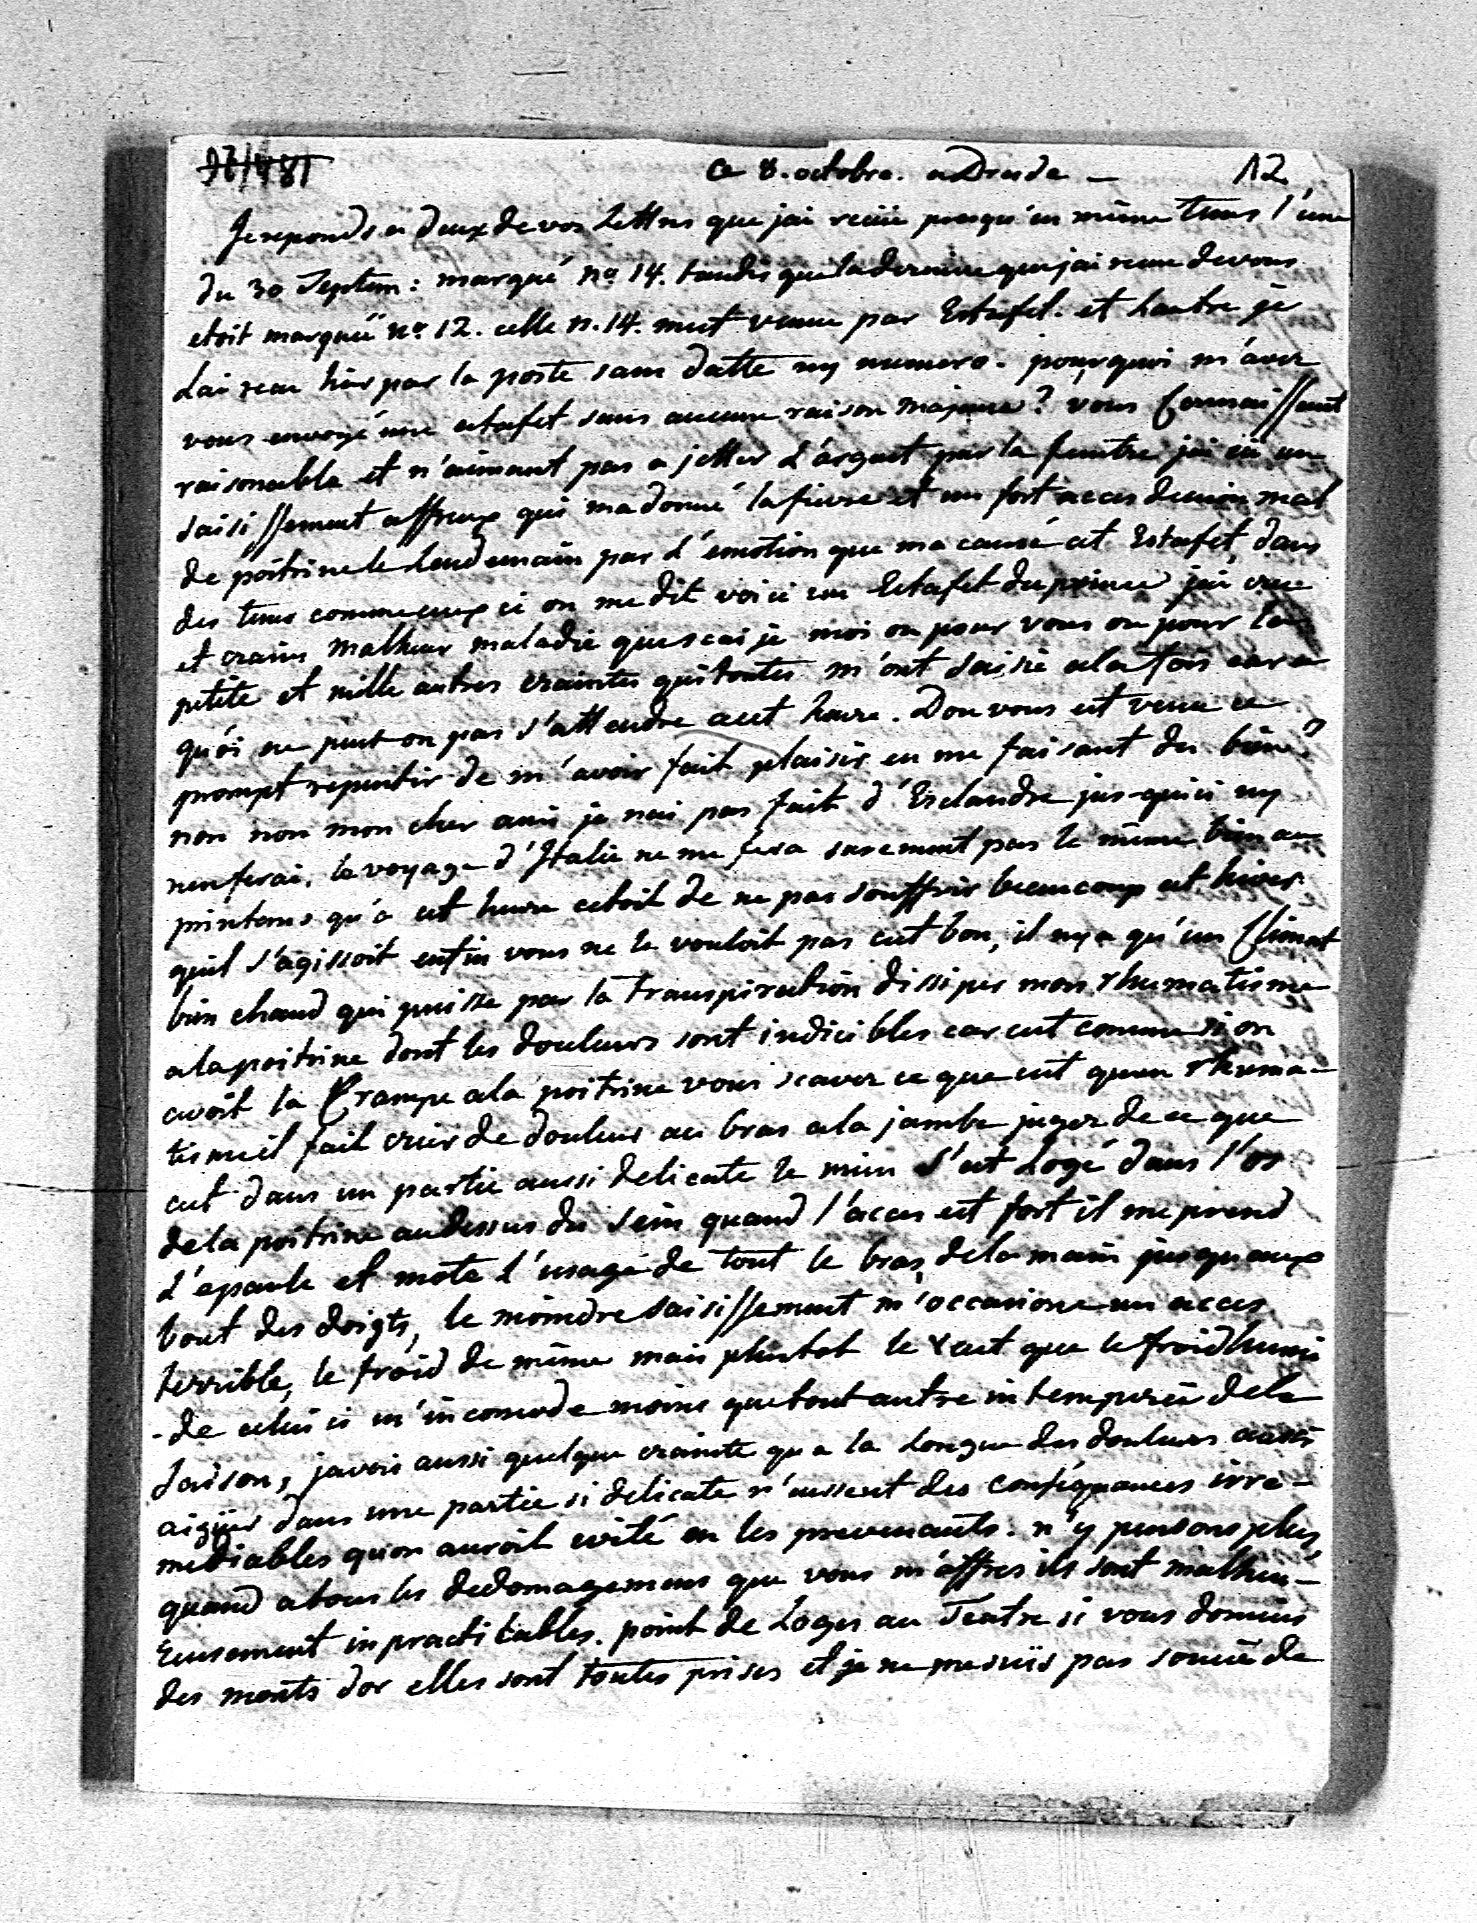 ce 8. octobre. a Dresde — 12
Je reponds a deux de vos Lettres que jai reçüe presqu'en même tems l'une
du 30 Septem: marqué no 14. tandis que la derniere que jai recue de vous
etoit marquéé no 12. celle n. 14. m'est venue par Estafet. et l'autre je
L'ai recue hier par la poste sans datte ny numero. pourquoi m'avez
vous envoyé une estafet sans aucune raison majeure? vous Connaissant
raisonable et n'aimant pas a jetter L'argent par la fenetre jai eü un
saisissement affreux qui ma donné la fievre et un fort acces de mon mal
de poitrine le Lendemain par L'emotion que ma causé cet Estafet, dans
des tems comme ceux ci on me dit voici un Estafet du prince jai crue
et crains malheur maladie que scai je moi ou pour vous ou pour la
petite et mille autres craintes qui toutes m'ont saisie a la fois car a
quoi ne peut on pas s'attendre a cet heure. Dou vous est venu ce
prompt repentir de m'avoir fait plaisir en me faisant du bien?
non non mon cher ami je nai pas fait d'Esclandre jus-quici ny
nen ferai, le voyage d'Italie ne me fera surement pas le même bien au
printems qu'a cet heure cetoit de ne pas souffrir beaucoup cet hiver
quil s'agissoit enfin vous ne le vouloit pas cest bon, il ny a qu'un Climat
bien chaud qui puisse par la transpiration dissiper mon rhumatisme
a la poitrine dont les douleurs sont indicibles car cest comme si on
avoit la Crampe a la poitrine vous scavez ce que cest quun rhuma-
tisme il fait crier de douleur au bras a la jambe jugez de ce que
cest dans un partie aussi delicate le mien s'est Logé dans l'os
de la poitrine audessus du sein quand l'acces est fort il me prend
L'epaule et mote L'usage de tout le bras, de la main jusquaux
bout des doigts, le moindre saisissement m'occasione un acces
terrible, le froid de même mais plutot le vent que le froid humi
-de celui ci m'incomode moins que tout autre intemperie de la
saison, javois aussi quelque crainte qu a la Longue des douleurs aussi
aigües dans une partie si delicate n'eussent des conséquances irre-
mediables quon auroit evité en les prevenants. n'y pensons plus,
quand a tous les dedomagemens que vous m'offres ils sont malheu-
reusement inpracticables. point de Loges au Teatre si vous donniés
des monts d'or elles sont toutes prises et je ne me suis pas souciée de